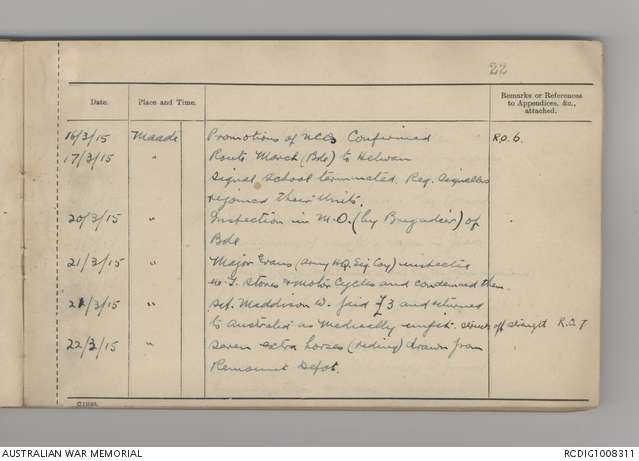 22
Date. Place and Time. Remarks or References to Appendices, &c., attached.
16/3/15 Maadi Promotions of NCOs Confirmed R.O. 6.
17/3/15 " Route March (Bde) to Helwan
Signal School terminated. Reg. Signallers
rejoined their Units.
20/3/15 " Inspection in M.O. (by Brigadier) of
Bde
21/3/15 " Major Evans (Army HQ Sig Coy) inspected
W.T. Stores & Motor Cycles and condemned them.
21/3/15 " Maddison W. fined £3 and returned
to Australia as Medically unfit. struck off strength R.O. 7
22/3/15 " Seven extra horses (riding) drawn from
Remount Depot.
AUSTRALIAN WAR MEMORIAL RCDIG1008311